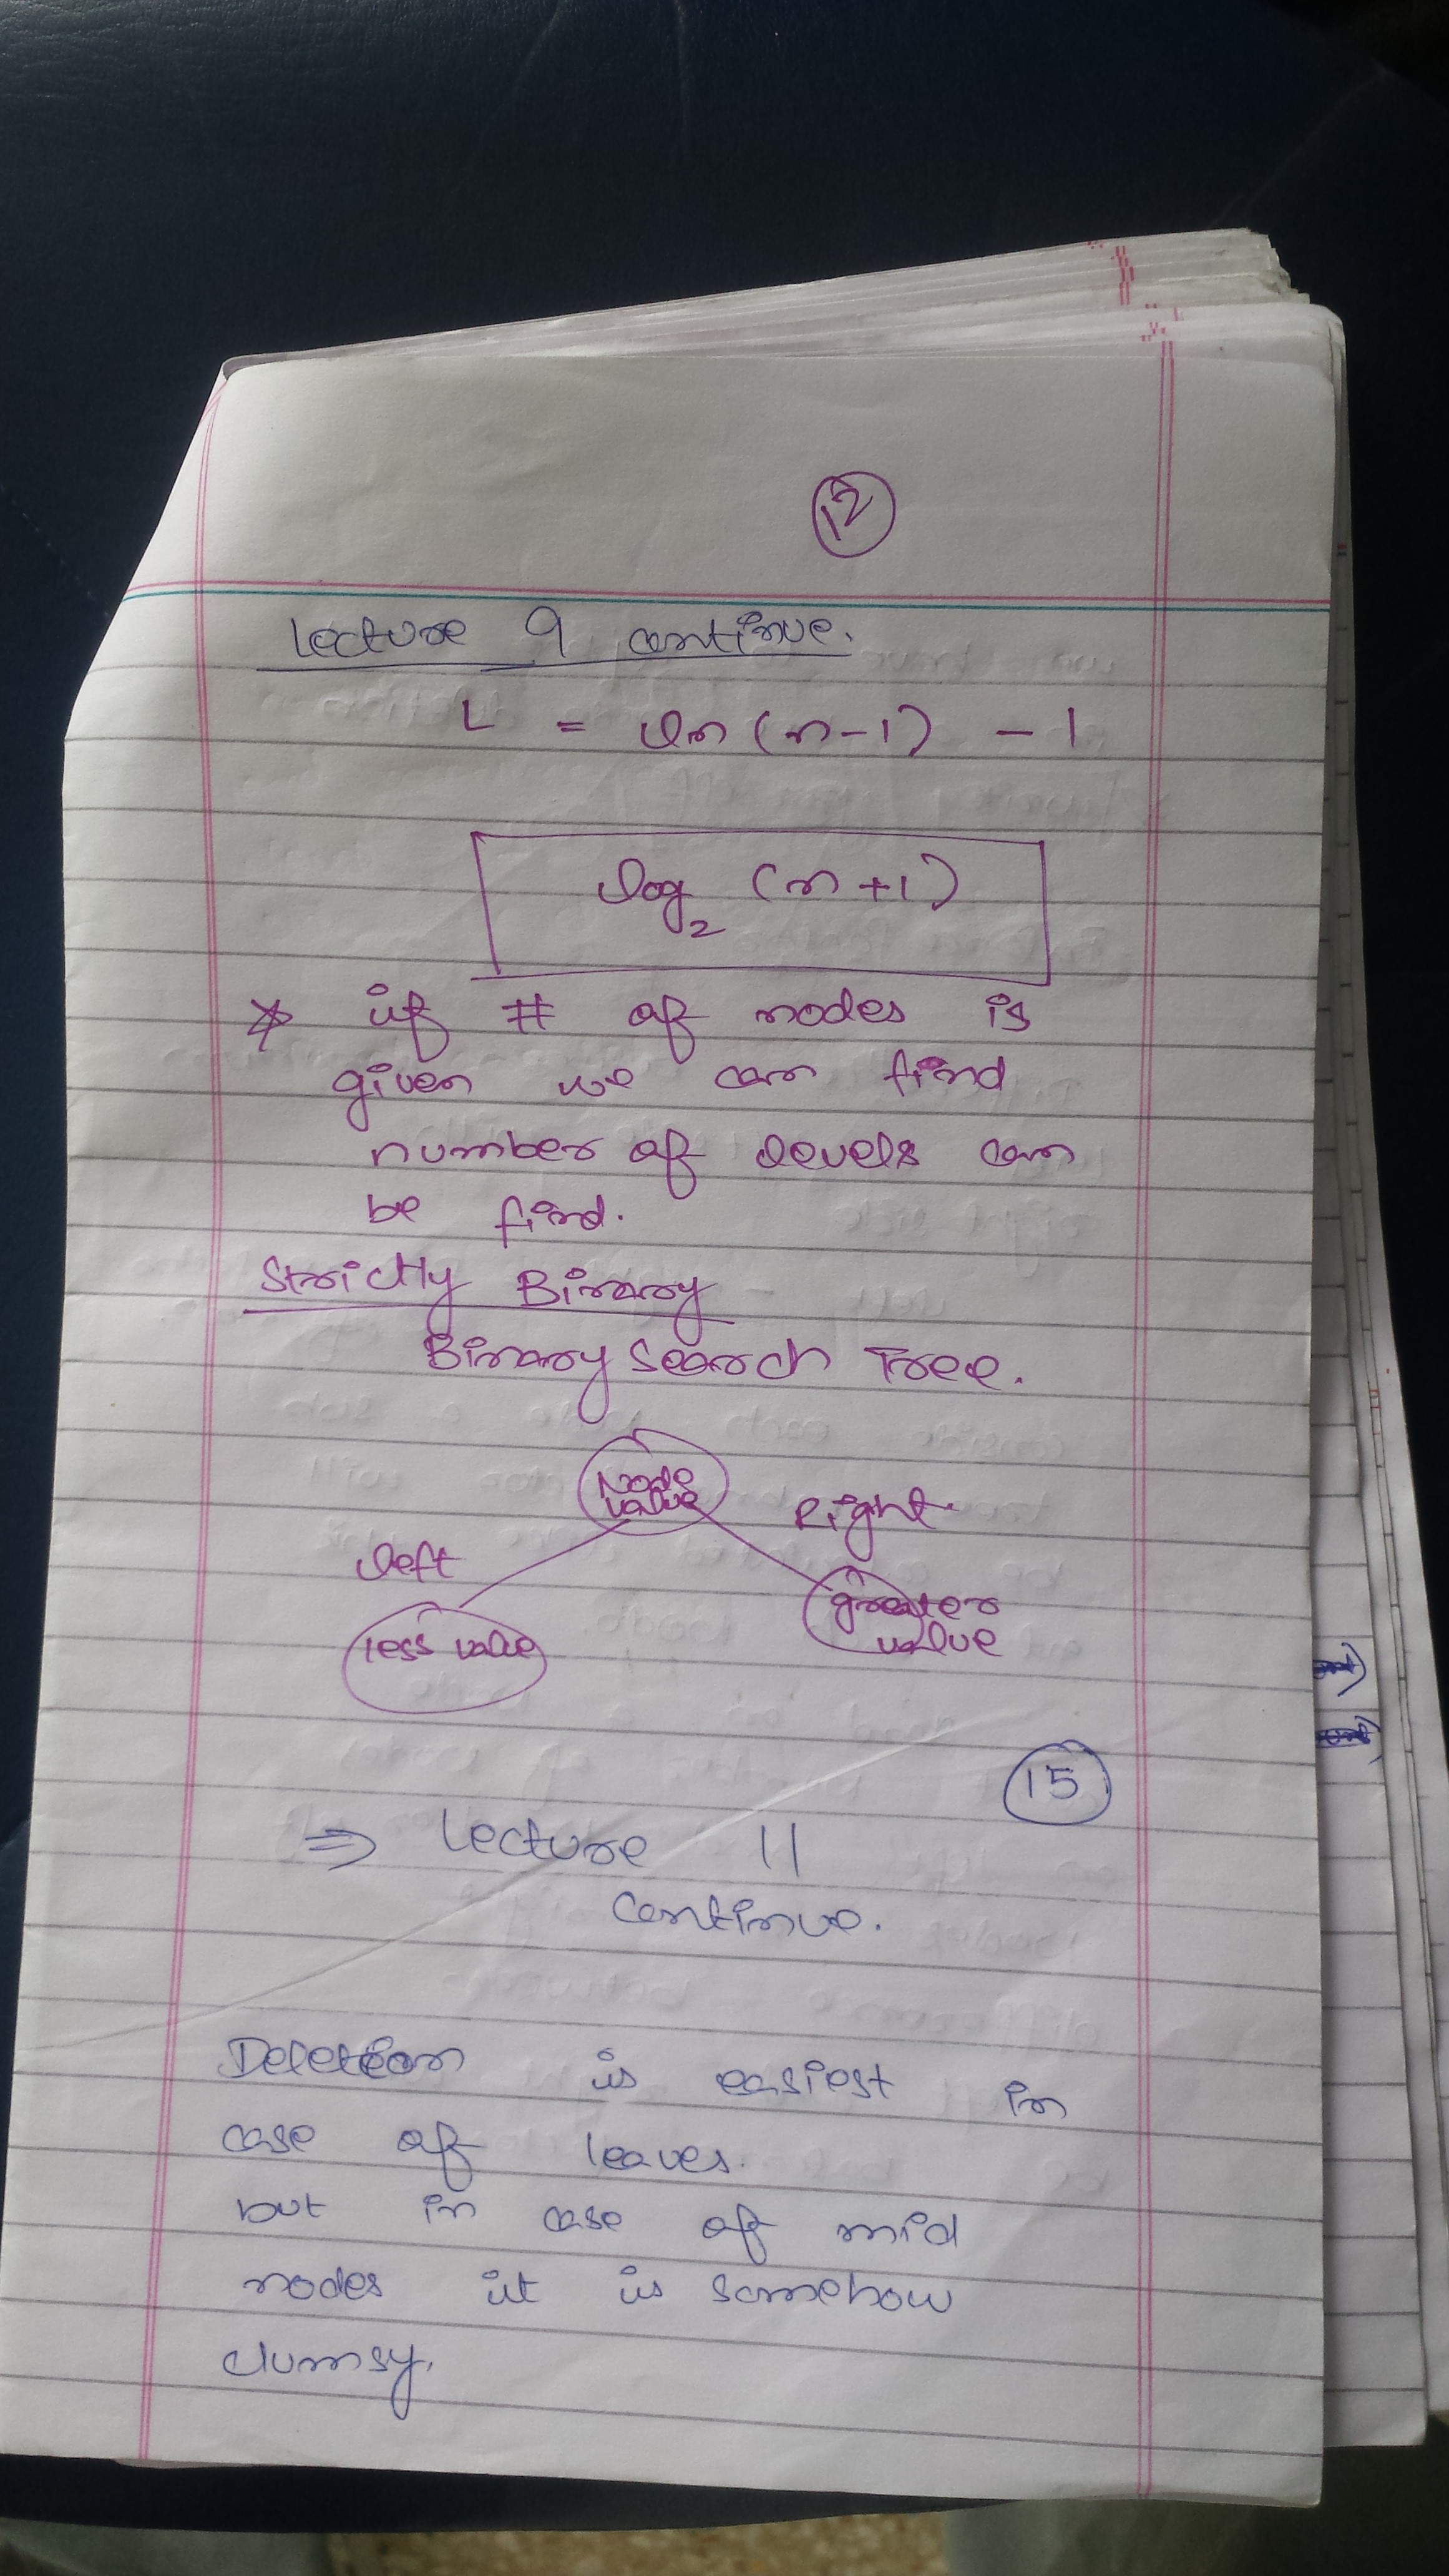 12
Lecture 9 continue.
L = ln (n-1) - 1
log2 (n+1)
* if # of nodes is
given we can find
number of levels can
be find.
Strictly Binary
Binary Search Tree.
Node
value
Right
left
greater
value
less value
15
⇒ Lecture 11
continue.
Deletion is easiest in
case of leaves.
but in case of mid
nodes it is somehow
clumsy.